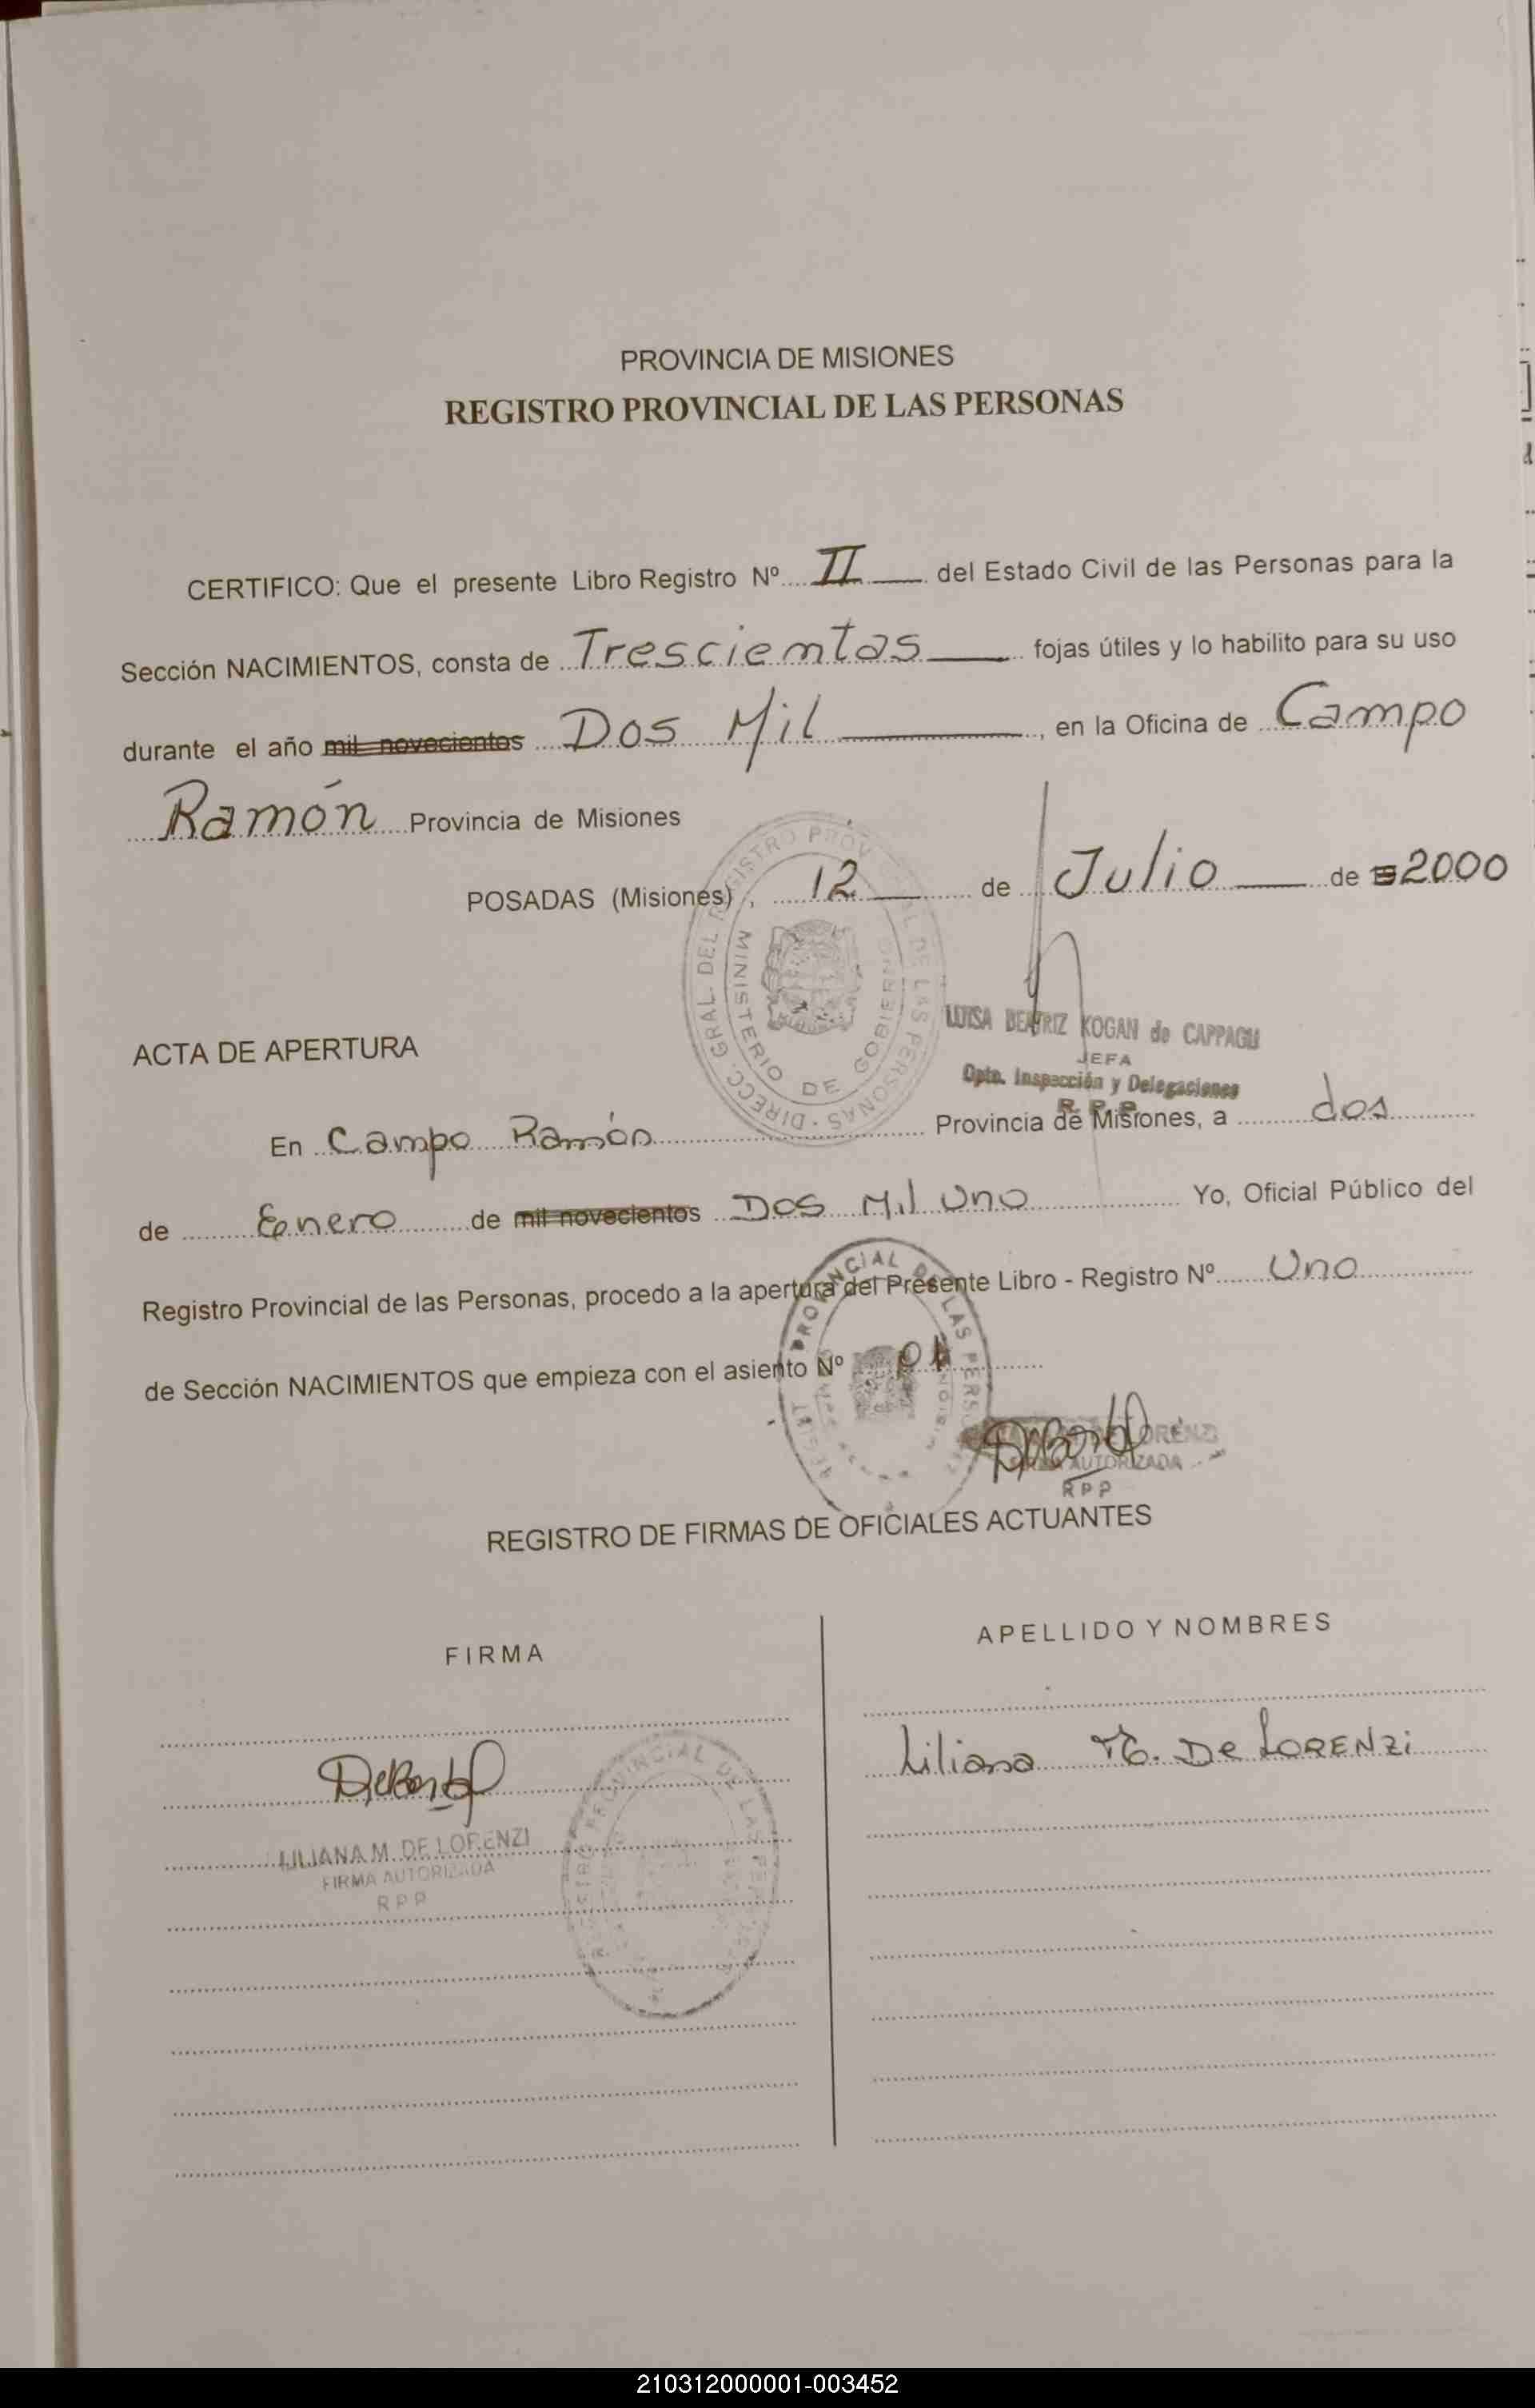 PROVINCIA DE MISIONES
REGISTRO PROVINCIAL DE LAS PERSONAS
CERTIFICO: Que el presente Libro Registro Nº II del Estado Civil de las Personas para la
Sección NACIMIENTOS, consta de Trescientas fojas útiles y lo habilito para su uso
durante el año mil novecientos Dos Mil, en la Oficina de Campo
Ramón Provincia de Misiones
POSADAS (Misiones), 12 de Julio de 2000
DIRECC. GRAL. DEL REGISTRO PROVINCIAL DE LAS PERSONAS
MINISTERIO DE GOBIERNO
LUISA BEATRIZ KOGAN de CAPPAGLI
JEFA
Dpto. Inspección y Delegaciones
R P P
ACTA DE APERTURA
En Campo Ramón Provincia de Misiones, a dos
de Enero de mil novecientos Dos Mil Uno Yo, Oficial Público del
Registro Provincial de las Personas, procedo a la apertura del Presente Libro - Registro Nº Uno
de Sección NACIMIENTOS que empieza con el asiento Nº 01
PROVINCIAL DE LAS
LORENZI
AUTORIZADA
RPP
REGISTRO DE FIRMAS DE OFICIALES ACTUANTES
FIRMA
APELLIDO Y NOMBRES
Liliana M. De LORENZi
LILIANA M. DE LORENZI
FIRMA AUTORIZADA
RPP
PROVINCIAL DE LAS
210312000001-003452